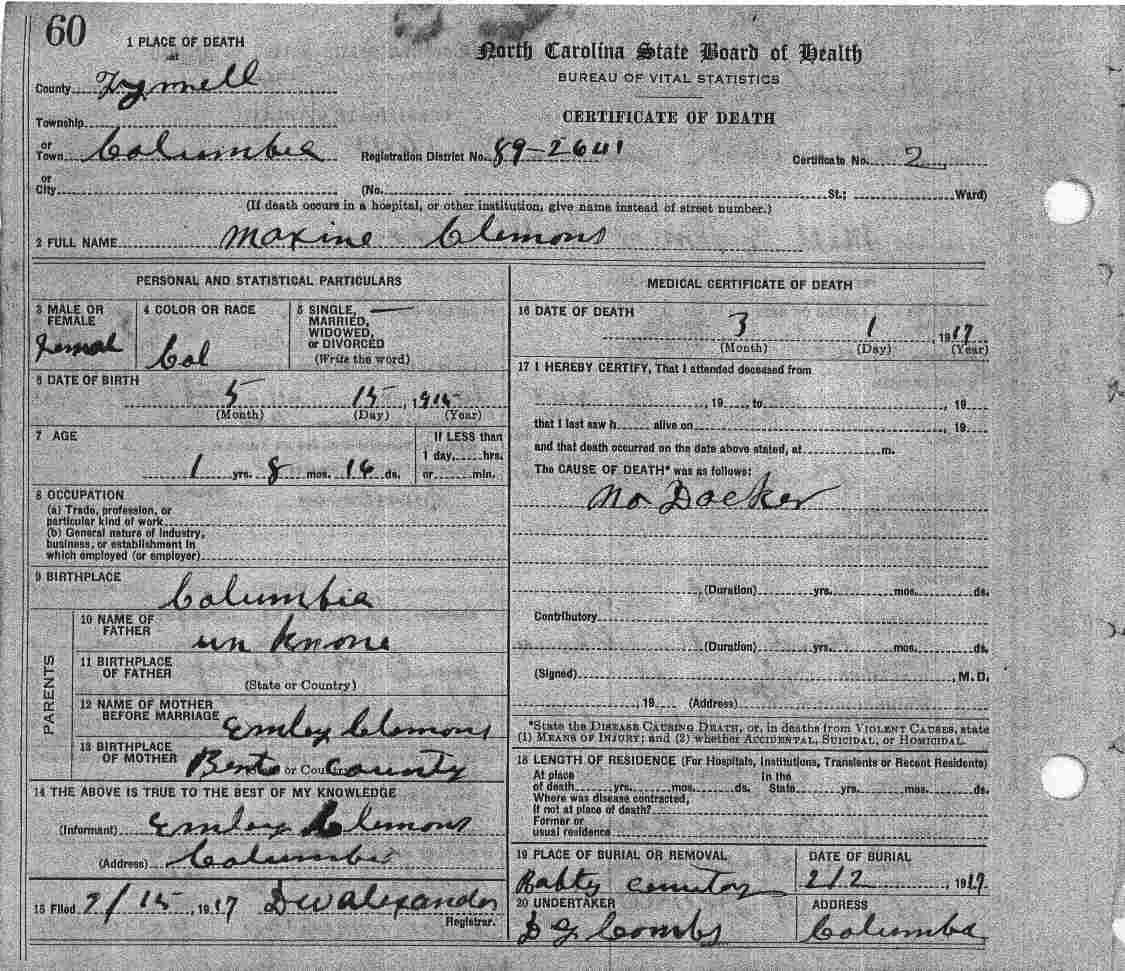 60
1 PLACE OF DEATH
at
North Carolina State Board of Health
BUREAU OF VITAL STATISTICS
County Tyrrell
CERTIFICATE OF DEATH
Township
or
Town Columbia Registration District No. 89-2641 Certificate No. 2
or
City (No. St.; Ward)
(If death occurs in a hospital, or other institution, give name instead of street number.)
2 FULL NAME Maxine Clemons
PERSONAL AND STATISTICAL PARTICULARS
3 MALE OR FEMALE Femal
4 COLOR OR RACE Col
5 SINGLE, MARRIED, WIDOWED, or DIVORCED (Write the word) —
6 DATE OF BIRTH
5 15, 1915
(Month) (Day) (Year)
7 AGE
1 yrs. 8 mos. 16 ds.
If LESS than
1 day, hrs.
or min.
8 OCCUPATION
(a) Trade, profession, or
particular kind of work
(b) General nature of Industry,
business, or establishment in
which employed (or employer)
9 BIRTHPLACE
Columbia
PARENTS
10 NAME OF FATHER un knone
11 BIRTHPLACE OF FATHER
(State or Country)
12 NAME OF MOTHER BEFORE MARRIAGE Emley Clemons
13 BIRTHPLACE OF MOTHER county
or Country
14 THE ABOVE IS TRUE TO THE BEST OF MY KNOWLEDGE
(Informant) Emley Clemons
(Address) Columbia
15 Filed 2/15, 1917 D W Alexander
Registrar.
MEDICAL CERTIFICATE OF DEATH
16 DATE OF DEATH
3 1 1917
(Month) (Day) (Year)
17 I HEREBY CERTIFY, That I attended deceased from
, 19 , to , 19
that I last saw h alive on , 19
and that death occurred on the date above stated, at m.
The CAUSE OF DEATH* was as follows:
No Docker
(Duration) yrs. mos. ds.
Contributory
(Duration) yrs. mos. ds.
(Signed) , M.D.
, 19 (Address)
*State the DISEASE CAUSING DEATH, or, in deaths from VIOLENT CAUSES, state
(1) MEANS OF INJURY; and (2) whether ACCIDENTAL, SUICIDAL, or HOMICIDAL.
18 LENGTH OF RESIDENCE (For Hospitals, Institutions, Transients or Recent Residents)
At place In the
of death yrs. mos. ds. State yrs. mos. ds.
Where was disease contracted,
If not at place of death?
Former or
usual residence
19 PLACE OF BURIAL OR REMOVAL DATE OF BURIAL
2/2, 1917
20 UNDERTAKER ADDRESS
Combs Columbia